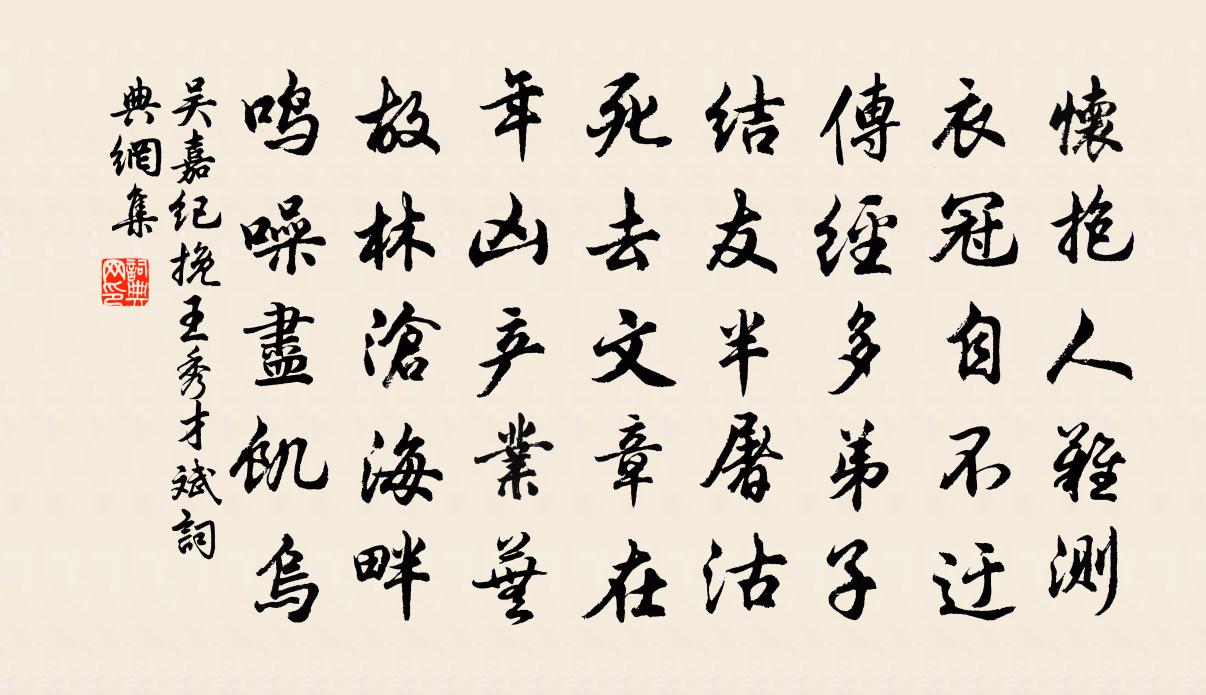 懷抱人難測
衣冠自不迂
傳經多弟子
结友半屠沽
死去文章在
年凶产業蕪
故林滄海畔
鸣噪盡飢烏
吴嘉纪挽王秀才斌詞
典網集
詞典网印